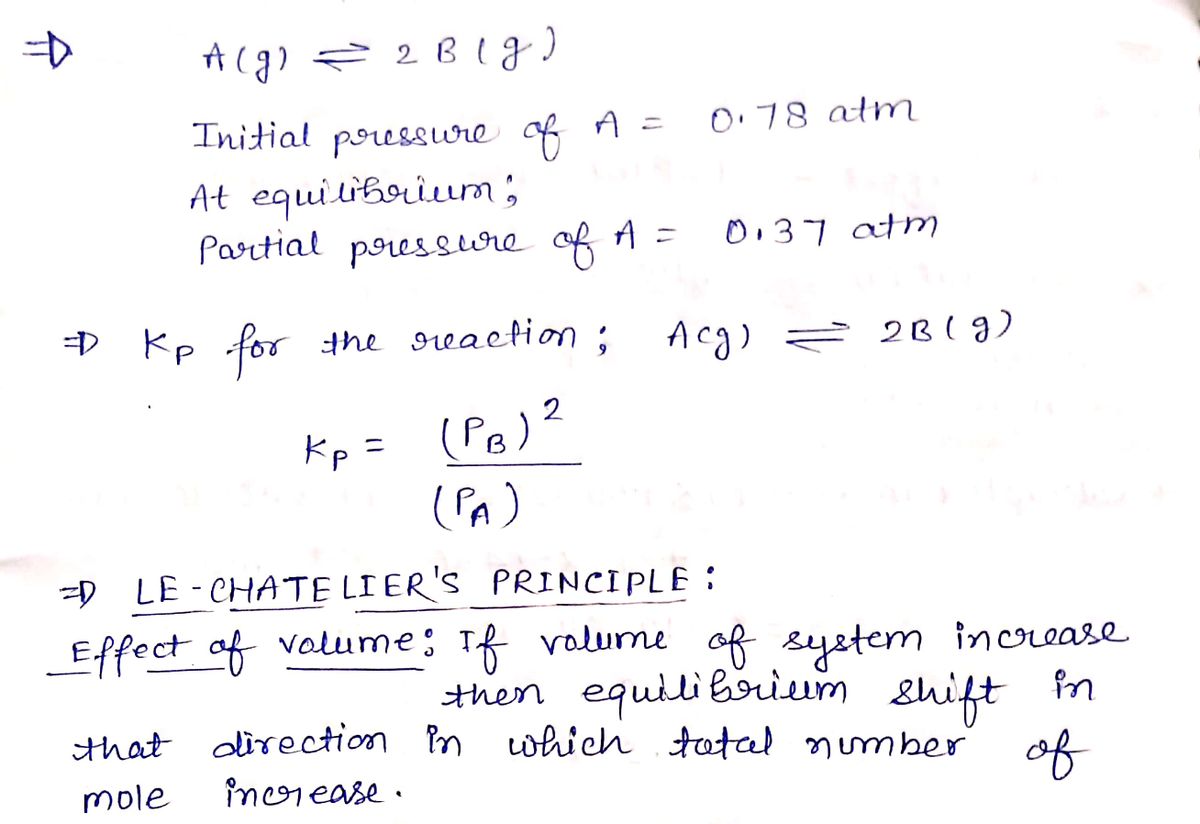 ⇒ A(g) ⇌ 2B(g)
Initial pressure of A = 0.78 atm
At equilibrium;
Partial pressure of A = 0.37 atm
⇒ Kp for the reaction; A(g) ⇌ 2B(g)
Kp = (PB)²
(PA)
⇒ LE-CHATELIER'S PRINCIPLE:
Effect of volume: If volume of system increase
then equilibrium shift in
that direction in which total number of
mole increase.